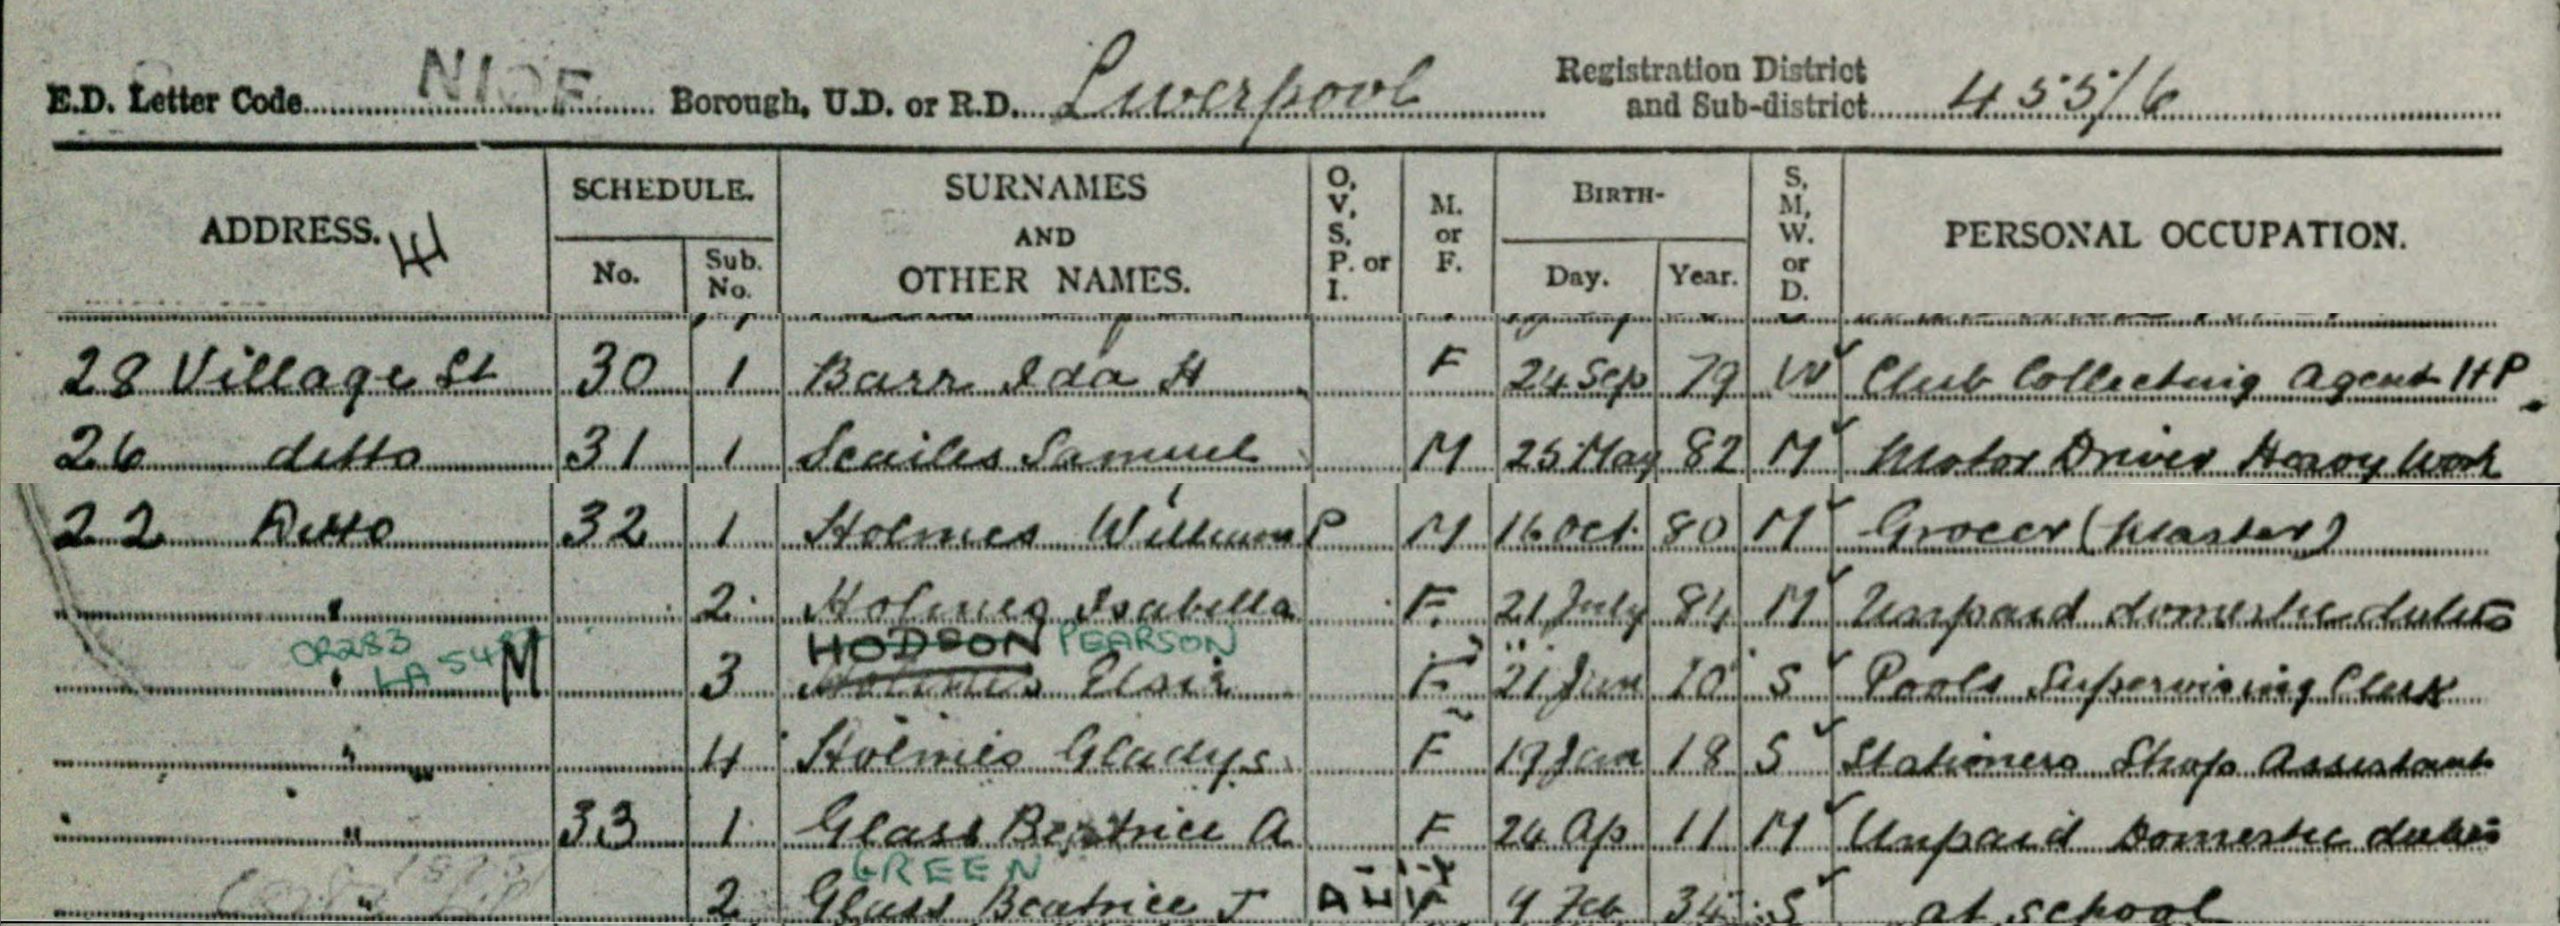 E.D. Letter Code Borough, U.D. or R.D. Liverpool Registration District and Sub-district 455/6
ADDRESS. SCHEDULE. No. Sub. No. SURNAMES AND OTHER NAMES. O, V, S, P. or I. M. or F. BIRTH- Day. Year. S, M, W. or D. PERSONAL OCCUPATION.
28 Village St 30 1 Barr Ida H F 24 Sep 79 W Club Collecting Agent HP
26 ditto 31 1 Scailes Samuel M 25 May 82 M Motor Driver Heavy Work
22 Ditto 32 1 Holmes William P M 16 Oct 80 M Grocer (Master)
" 2 Holmes Isabella F 21 July 84 M Unpaid domestic duties
CR283 LA 54 M HODSON PEARSON
" 3 Holmes Elsie F 21 Jun 10 S Pools Supervising Clerk
" 4 Holmes Gladys F 19 Jan 18 S Stationers Shop Assistant
" 33 1 Glass Beatrice A F 24 Ap 11 M Unpaid Domestic duties
GREEN
" 2 Glass Beatrice J F 9 Feb 34 S at school